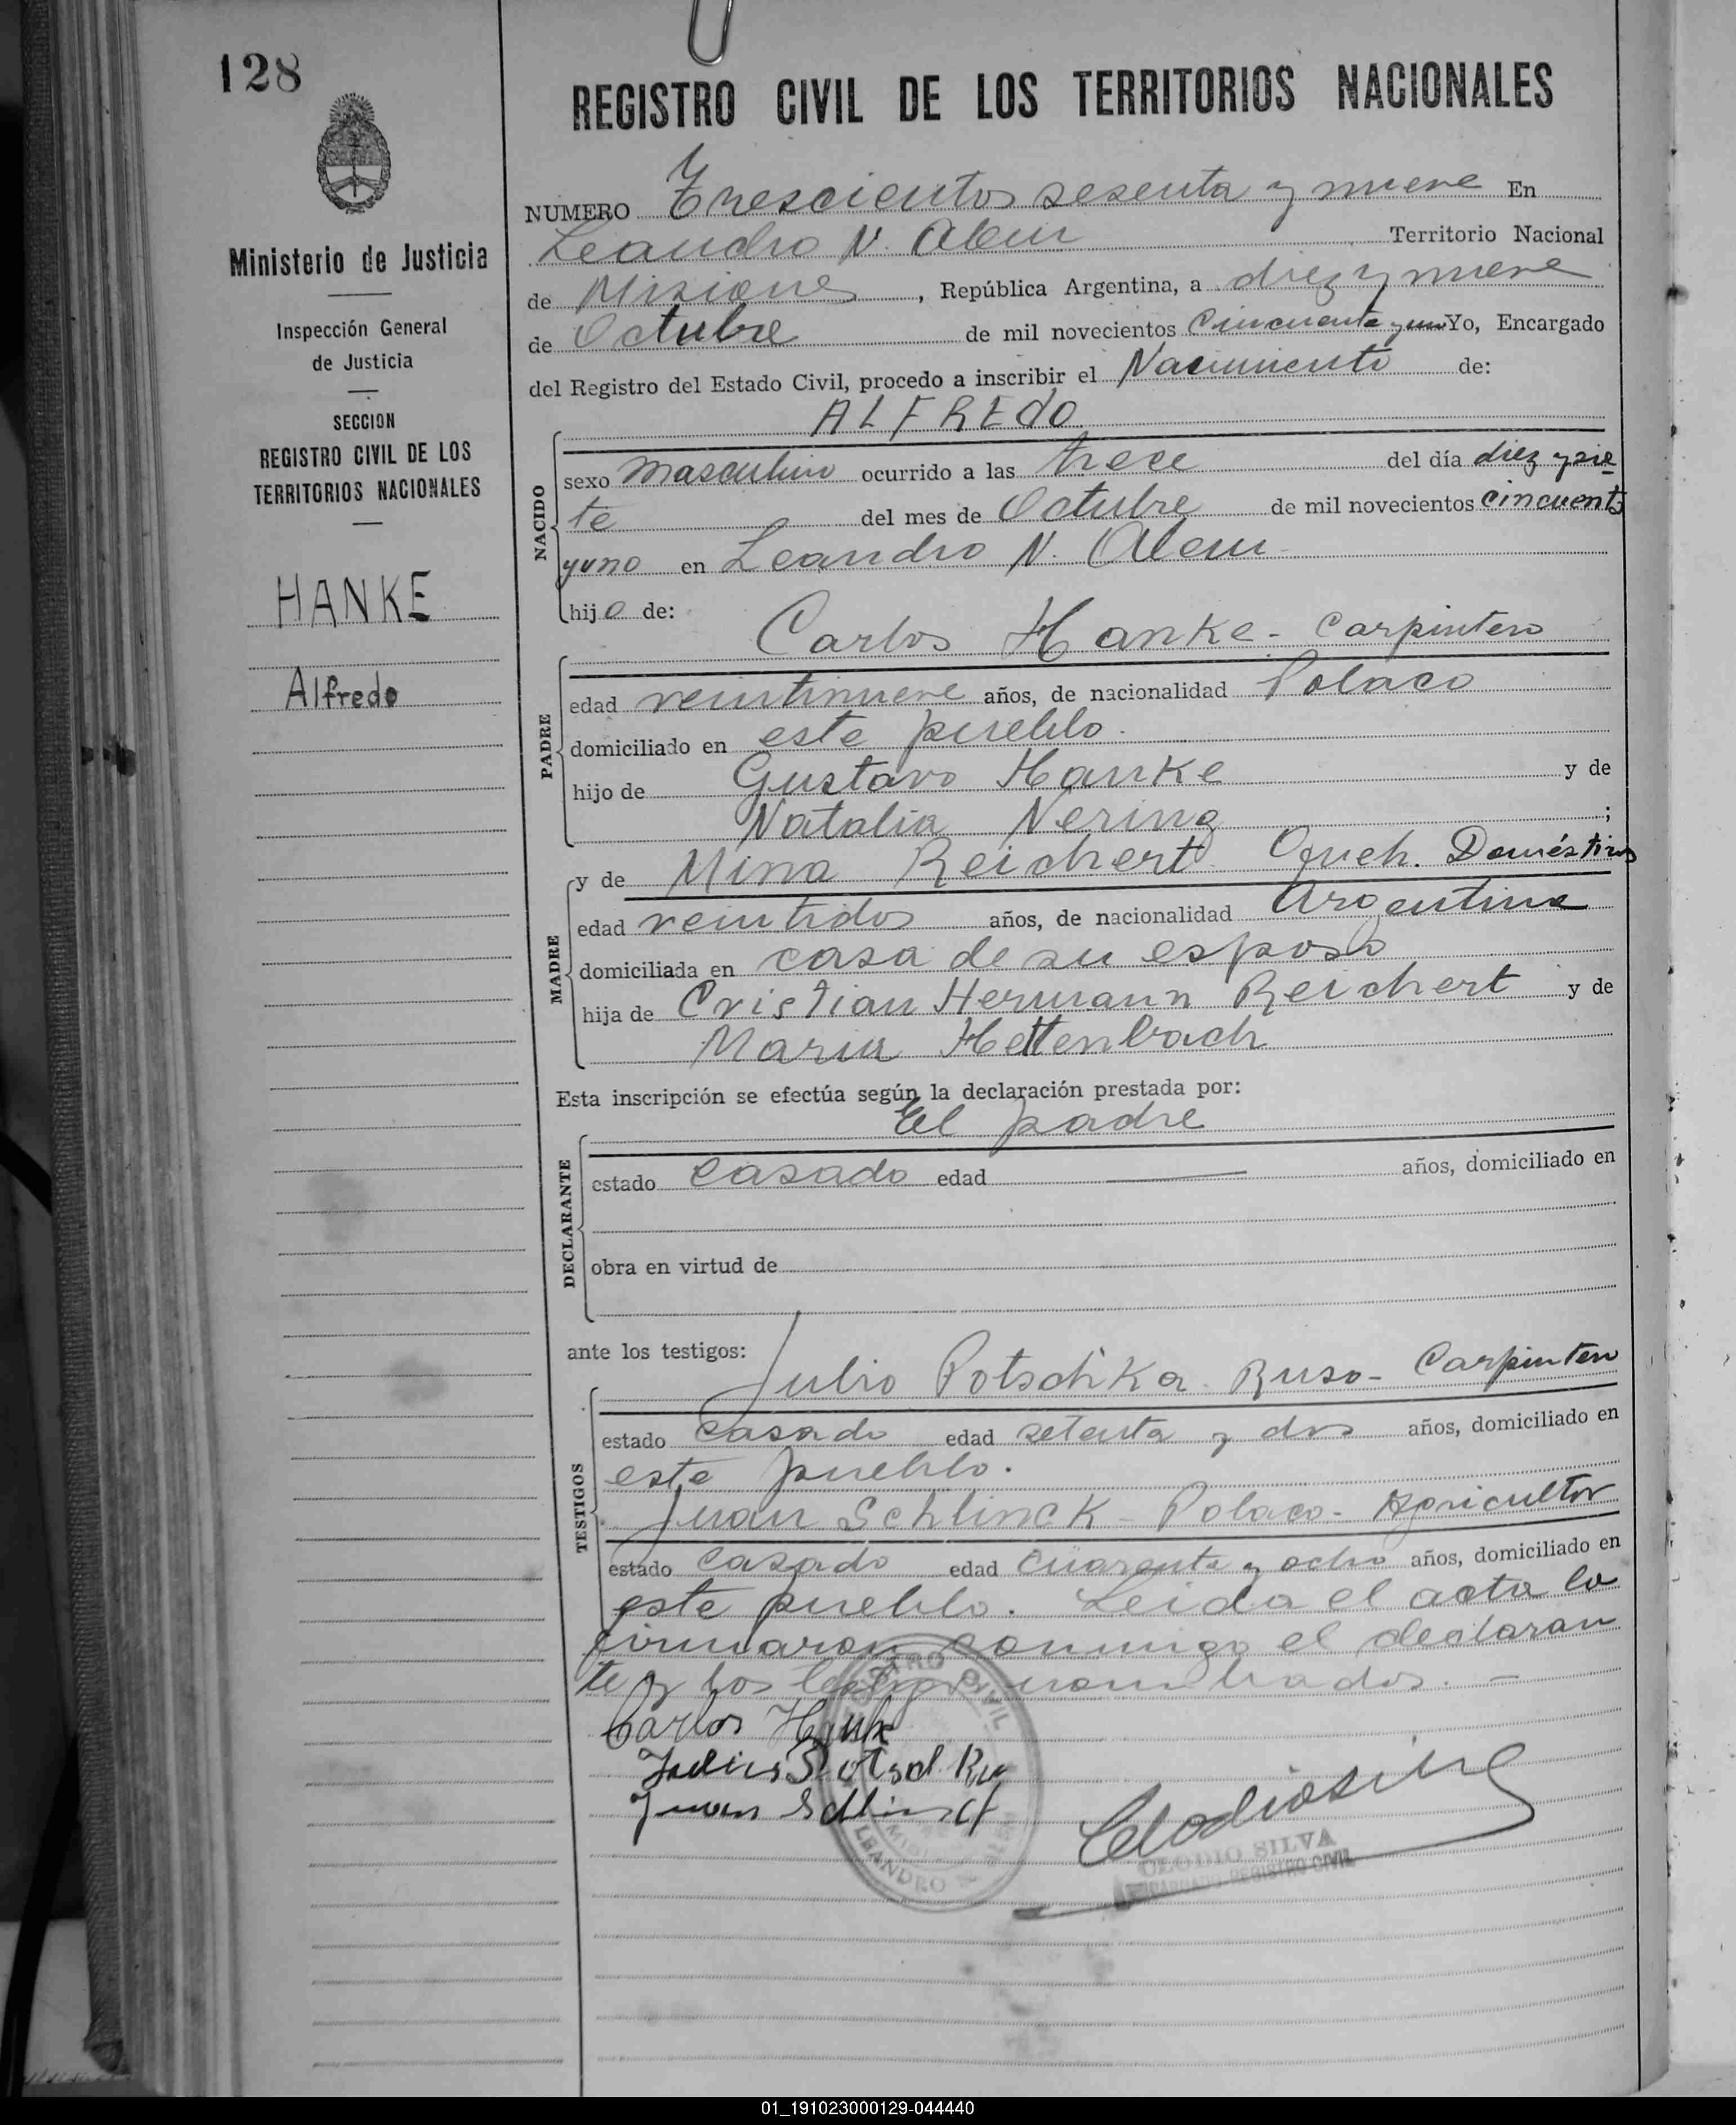 128
REGISTRO CIVIL DE LOS TERRITORIOS NACIONALES
Ministerio de Justicia
Inspección General
de Justicia
SECCION
REGISTRO CIVIL DE LOS
TERRITORIOS NACIONALES
HANKE
Alfredo
NUMERO Trescientos sesenta y nueve En
Leandro N. Alem Territorio Nacional
de Misiones, República Argentina, a diez y nueve
de Octubre de mil novecientos Cincuenta y un Yo, Encargado
del Registro del Estado Civil, procedo a inscribir el Nacimiento de:
ALFREdO
NACIDO
sexo masculino ocurrido a las trece del día diez y sie
te del mes de Octubre de mil novecientos cincuenta
y uno en Leandro N. Alem
hijo de:
Carlos Hanke - Carpintero
PADRE
edad veintinueve años, de nacionalidad Polaco
domiciliado en este pueblo.
hijo de Gustavo Hanke y de
Natalia Nering;
MADRE
y de Mina Reichert Queh. Domésticos
edad veintidos años, de nacionalidad Argentina
domiciliada en casa de su esposo
hija de Cristian Hermann Reichert y de
Maria Hettenbach
Esta inscripción se efectúa según la declaración prestada por:
El padre
DECLARANTE
estado casado edad — años, domiciliado en
obra en virtud de
ante los testigos:
Julio Potschka Ruso - Carpintero
TESTIGOS
estado casado edad setenta y dos años, domiciliado en
este pueblo.
Juan Schlinck - Polaco - Agricultor
estado casado edad cuarenta y ocho años, domiciliado en
este pueblo. Leida el acta la
firmaron conmigo el declaran
te y los testigos nombrados. -
Carlos Hanke
Juan Schlinck
REGISTRO CIVIL
LEANDRO N. ALEM
Clodio Silva
CLODIO SILVA
ENCARGADO REGISTRO CIVIL
01_191023000129-044440